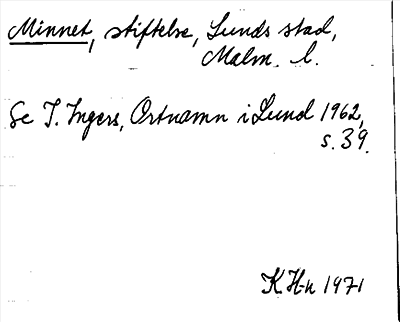 Minnet, stiftelse, Lunds stad,
Malm. l.
Se I. Ingers, Ortnamn i Lund 1962,
s. 39.
K H-n 1971